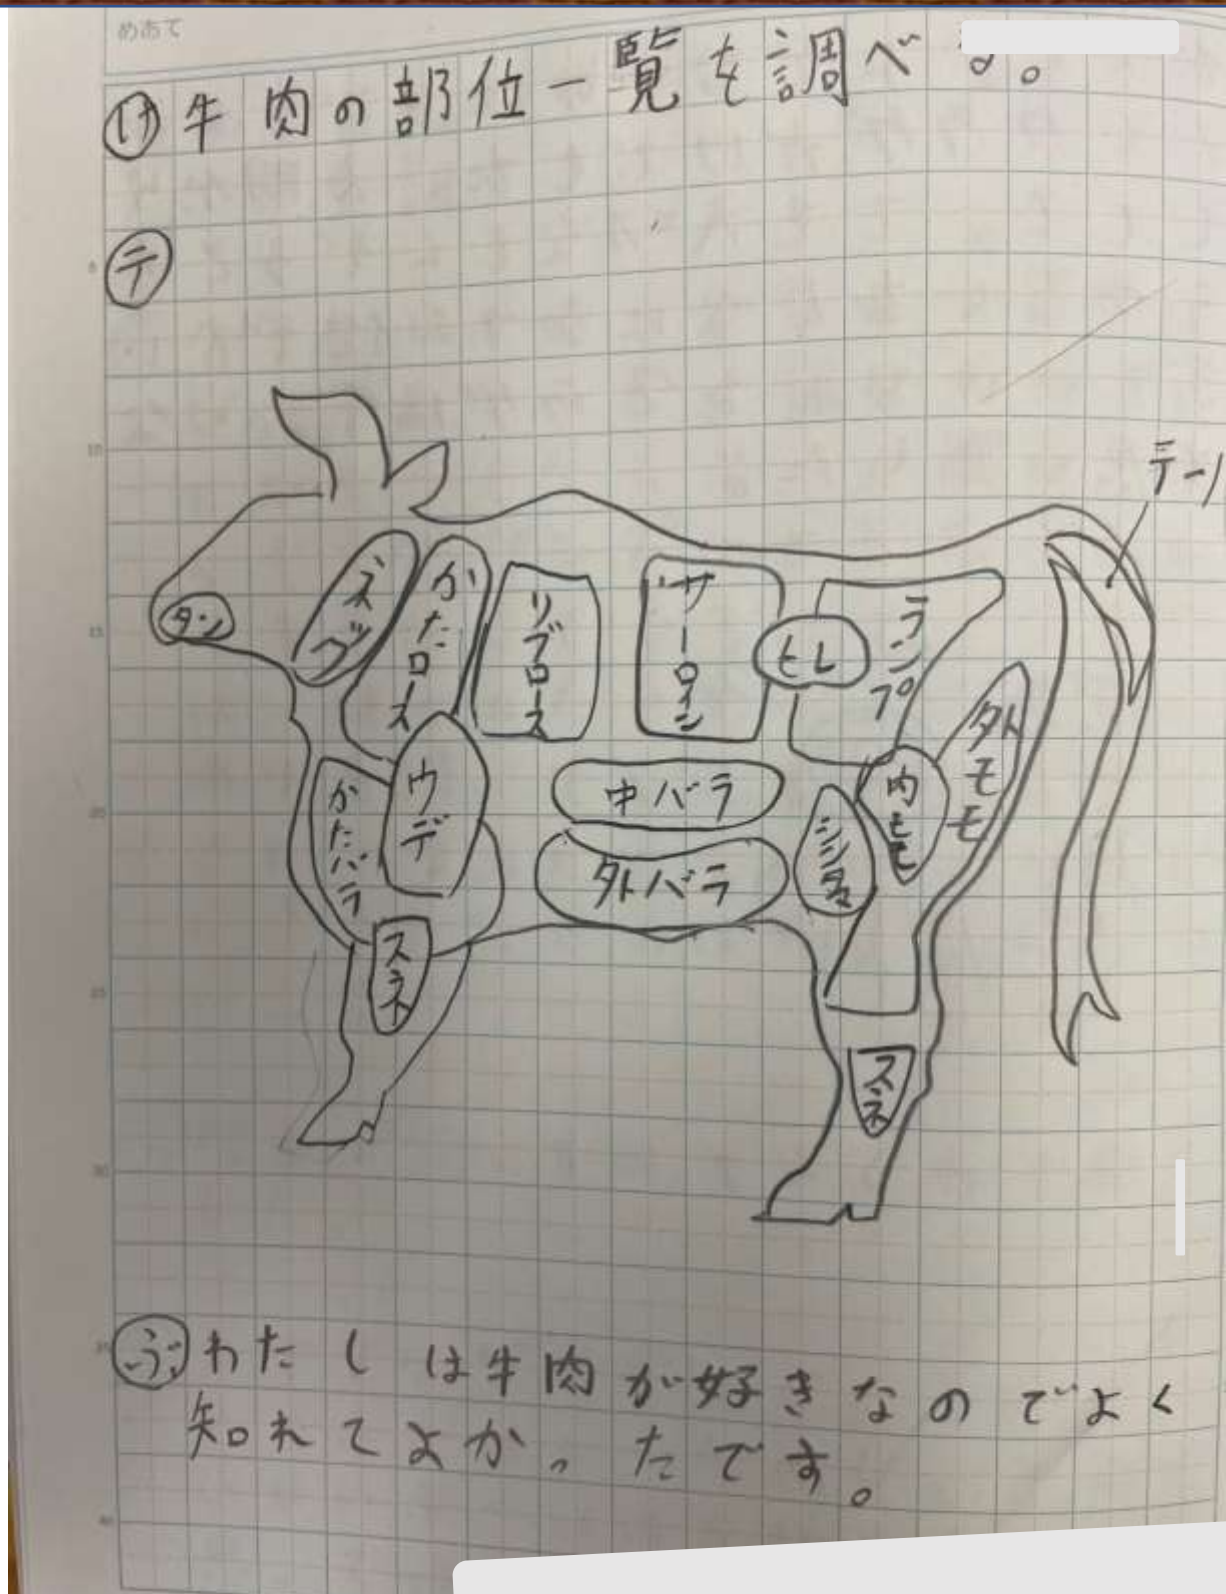 めあて
け 牛肉の部位一覧を調べる。
テ
テール
タン
ネック
かたロース
リブロース
サーロイン
ヒレ
ランプ
外モモ
内モモ
シンタマ
中バラ
外バラ
かたバラ
ウデ
スネ
スネ
5
10
15
20
25
30
35
40
ふ わたしは牛肉が好きなのでよく
知れてよかったです。